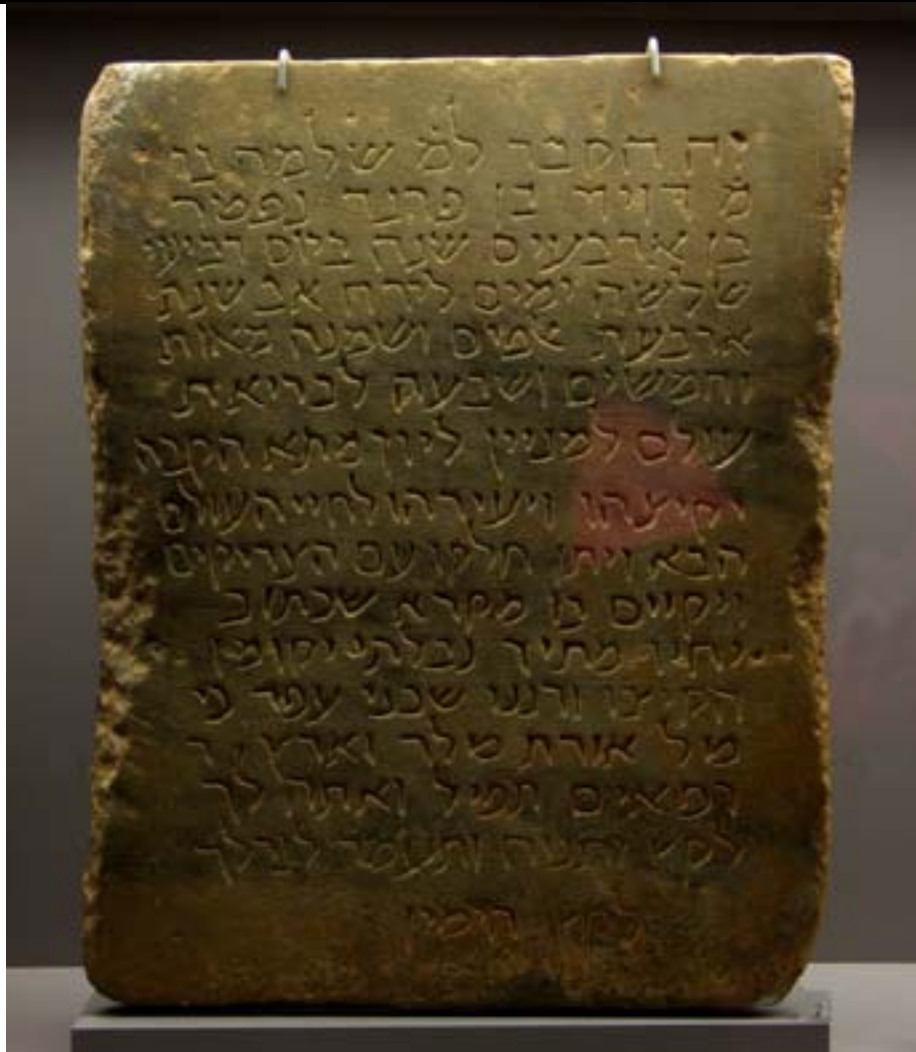 זה הקבר למ שלמה בן
מ דויד בן פרנה נפטר
בן ארבעים שנה ביום רביעי
שלשה ימים לירח אב שנת
ארבעת אפים ושמנה מאות
וחמשים ושבעה לבריאת
עולם למניין ליון מתא הקבה
יקיצהו ויעירהו לחיי העולם
הבא ויתן חלקו עם הצדיקים
ויקויים בו מקרא שכתוב
יחיו מתיך נבלתי יקומון
הקיצו ורננו שכני עפר כי
טל אורת טלך וארץ
רפאים תפיל ואתה לך
לקץ ותנוח ותעמד לגרלך
לקץ הימין